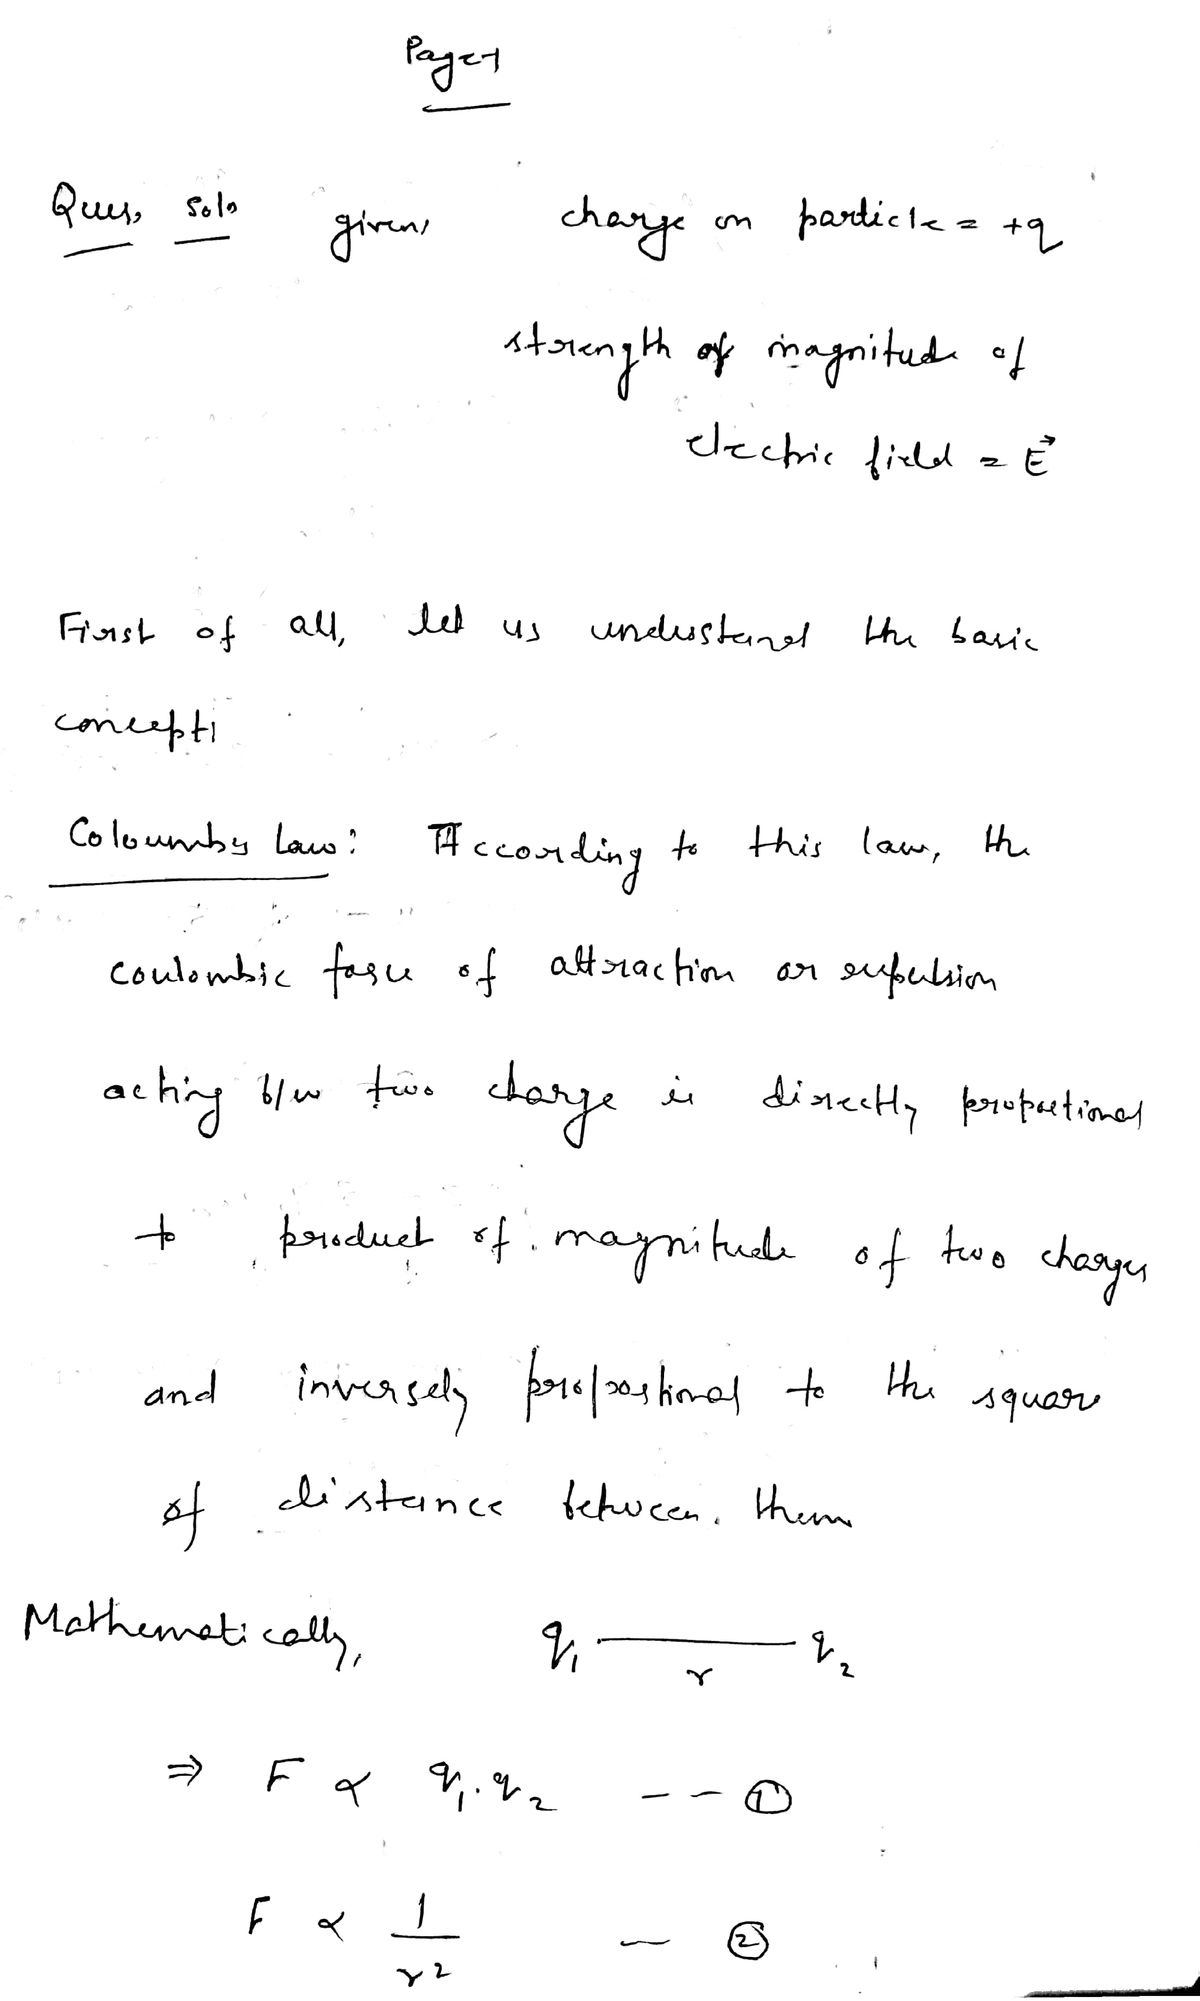 Page-1
Ques. Sol. given, charge on particle = +q
strength of magnitude of
electric field = E⃗
First of all, let us understand the basic
concept:
Coloumbs Law: According to this law, the
coulombic force of attraction or repulsion
acting b/w two charge is directly proportional
to product of magnitude of two charges
and inversely proportional to the square
of distance between them
Mathematically, q₁ —— q₂
r
⇒ F ∝ q₁.q₂ --- ①
F ∝ 1/r² — ②